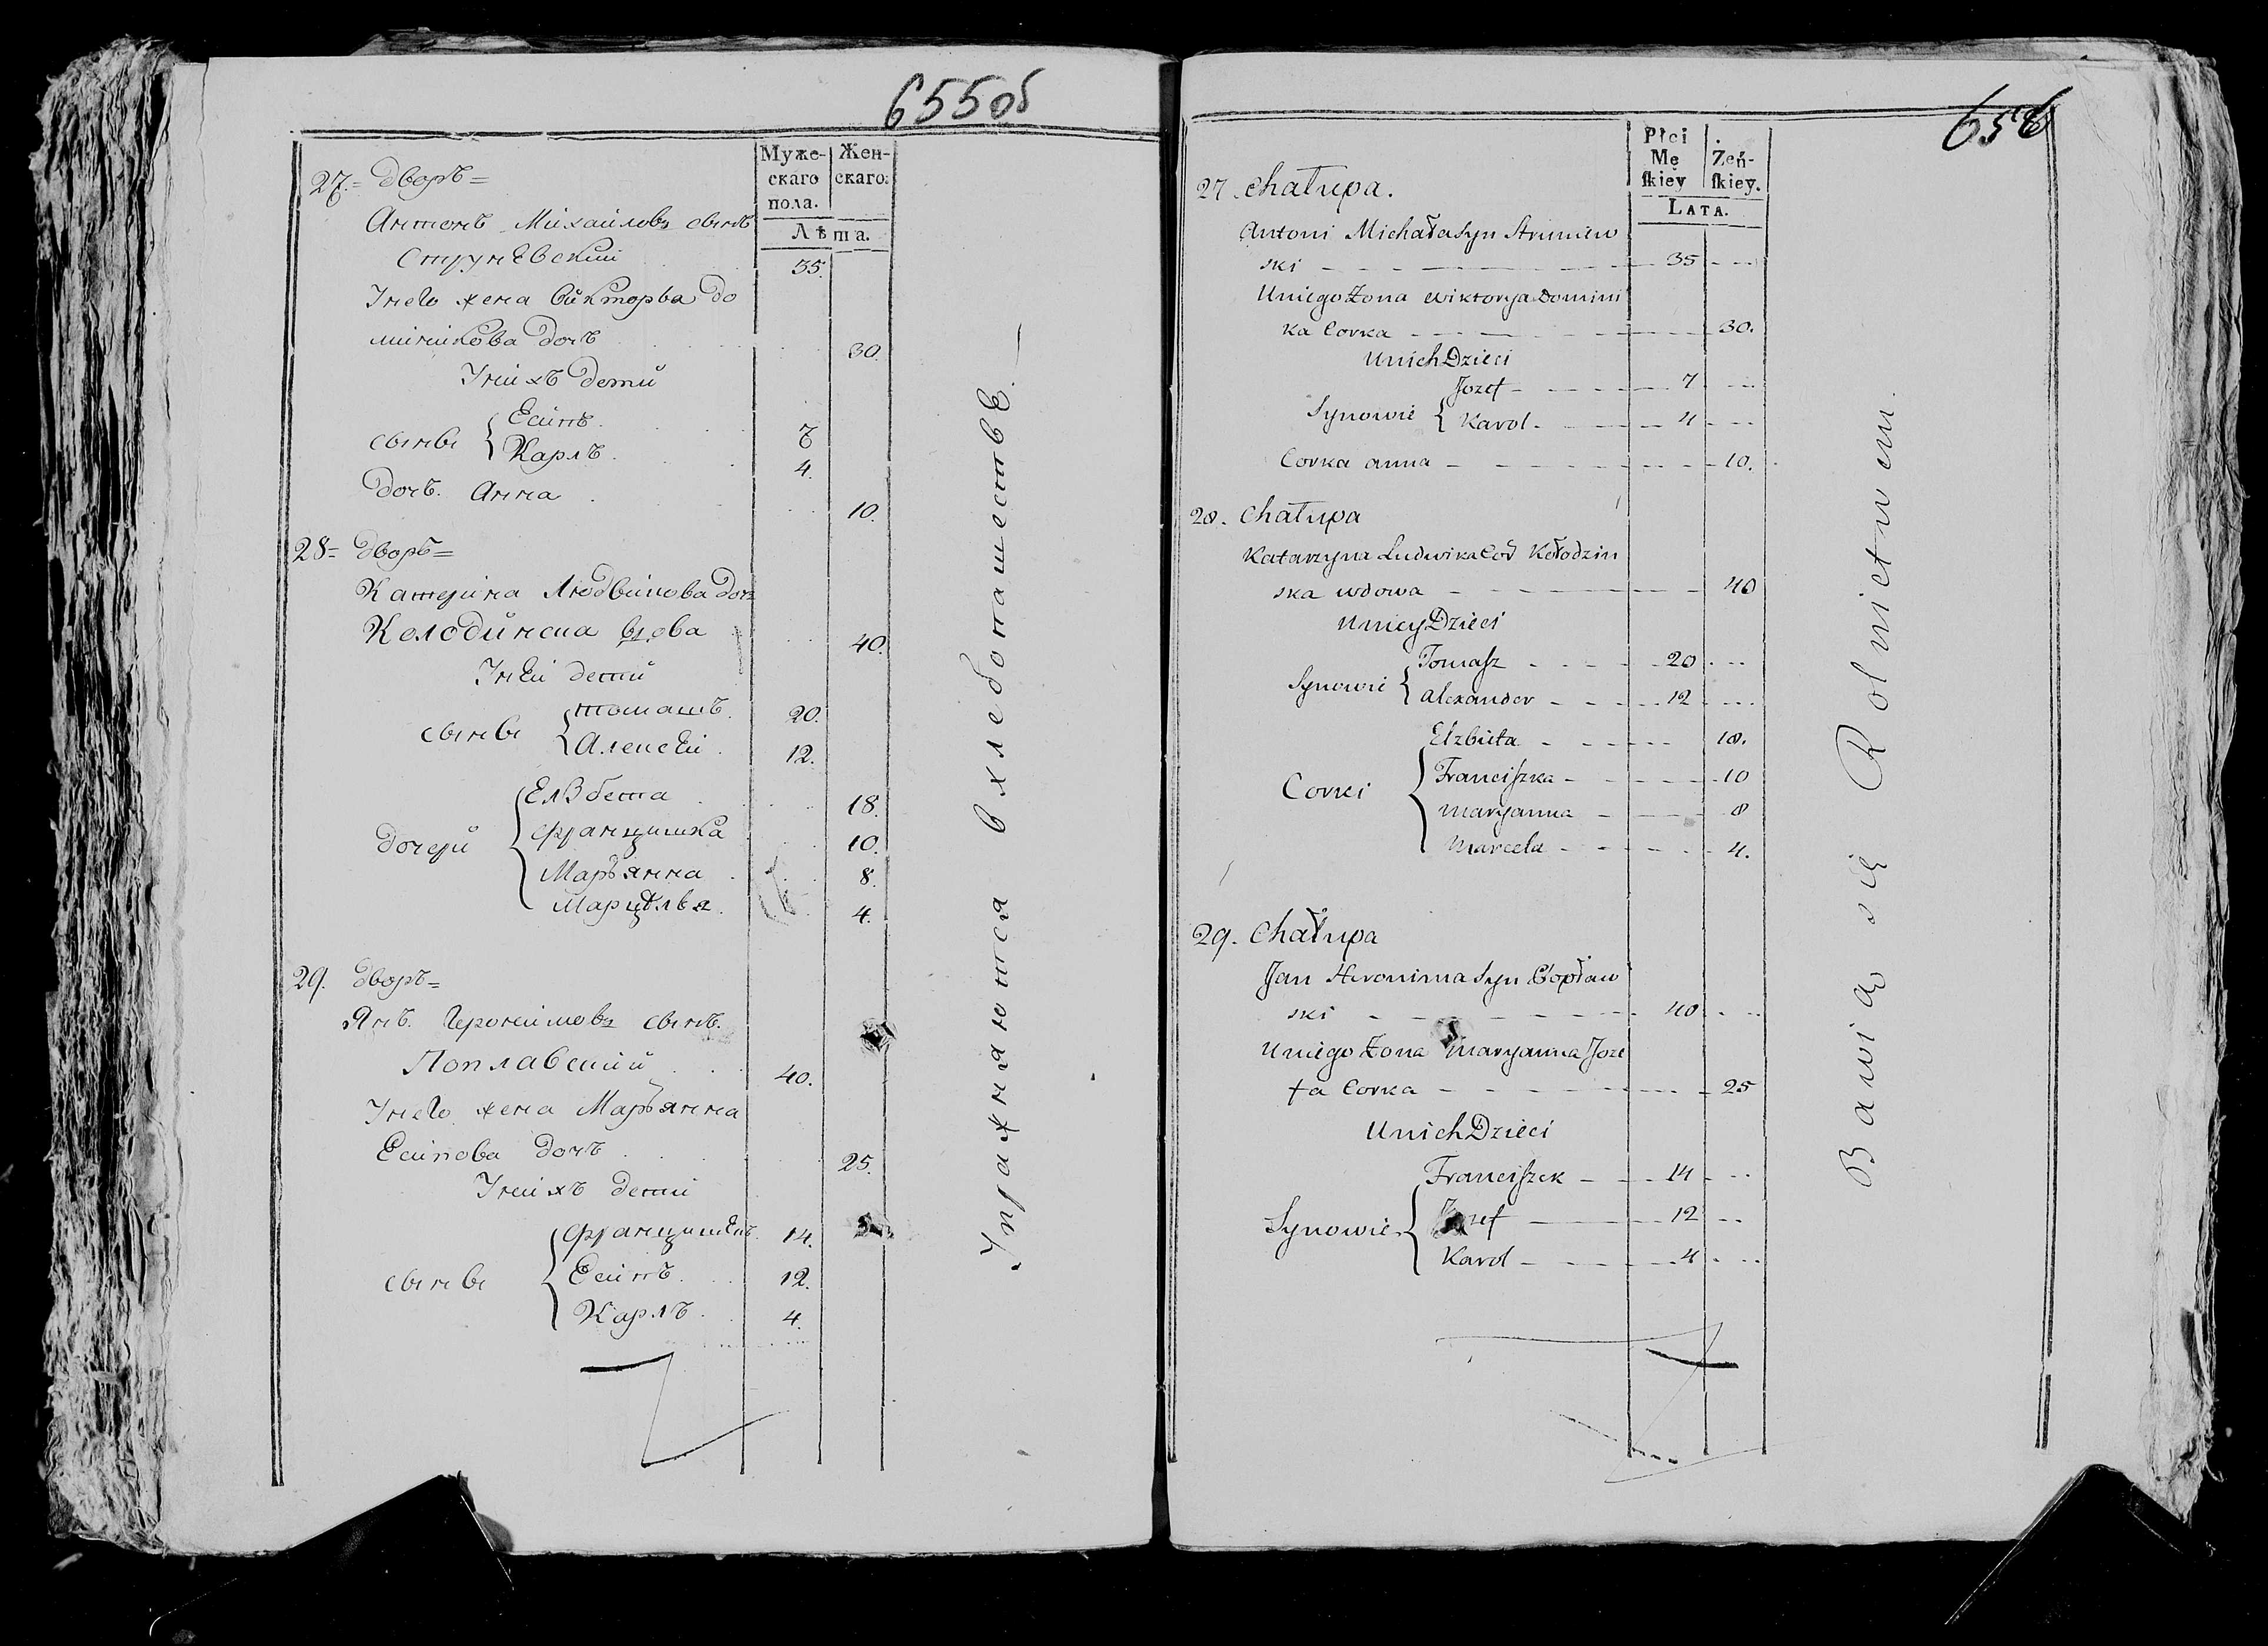 655об
Муже-
скаго
пола.
Жен-
скаго.
Лѣта.
27.= Дворъ=
Антонъ Михайловъ сынъ
Струневский 35.
Унего жена Викторья До
миникова дочь 30.
Унихъ дети
сыны
Есипъ. 7
Карлъ. 4.
Дочь. Анна 10.
28= Дворъ=
Катерина Людвикова дочь
Колодинска вдова 40.
Уней дети
сыны
Томашъ. 20.
Алексей. 12.
дочери
Елзбета 18.
Францишка 10.
Марьянна 8.
Марцелья. 4.
29. Дворъ=
Янъ. Иеронимовъ сынъ.
Поплавский 40.
Унего жена Марьянна
Есипова дочь 25.
Унихъ дети
сыны
Францишекъ. 14.
Есипъ. 12.
Карлъ. 4.
Упражняются в хлебопашестве.
656
Płci
Mę
ſkiey
Żeń-
ſkiey.
LATA.
27. Chałupa.
Antoni Michała Syn Struniew
ski 35
Uniego Żona Wiktorya Domini
ka Corka 30.
Unich Dzieci
Synowie
Jozef 7
Karol 4
Corka Anna 10.
28. Chałupa
Katarzyna Ludwika Coŕ Kołodzin
ska wdowa 40
Uniey Dzieci
Synowie
Tomaſz 20
Alexander 12
Corki
Elzbieta 18.
Franciſzka 10
Maryanna 8
Marcela 4.
29. Chałupa
Jan Heronima Syn Popław
ski 40
Uniego Żona Maryanna Joze
fa Corka 25
Unich Dzieci
Synowie
Franciſzek 14
Jozef 12
Karol 4
Bawią się Rolnictwem.